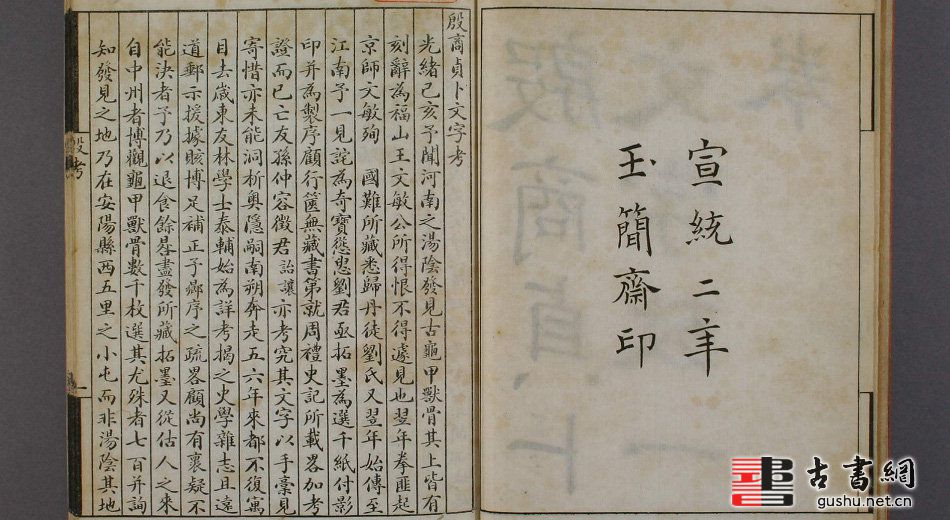 宣統二年
玉簡齋印
殷商貞卜文字考
光緒己亥予聞河南之湯陰發見古龜甲獸骨其上皆有
刻辭為福山王文敏公所得恨不得遽見也翌年拳匪起
京師文敏殉 國難所藏悉歸丹徒劉氏又翌年始傳至
江南予一見詫為奇寶慫恿劉君亟拓墨為選千紙付影
印并為製序顧行篋無藏書第就周禮史記所載畧加考
證而已亡友孫仲容徵君詒讓亦考究其文字以手稾見
寄惜亦未能洞析奧隱嗣南朔奔走五六年來都不復寓
目去歲東友林學士泰輔始為詳考揭之史學雜志且遠
道郵示援據賅博足補正予鄉序之疏畧顧尚有褱疑不
能決者予乃以退食餘晷盡發所藏拓墨又從估人之來
自中州者博觀龜甲獸骨數千枚選其尤殊者七百并詢
知發見之地乃在安陽縣西五里之小屯而非湯陰其地
殷考
一
古書網
gushu.net.cn